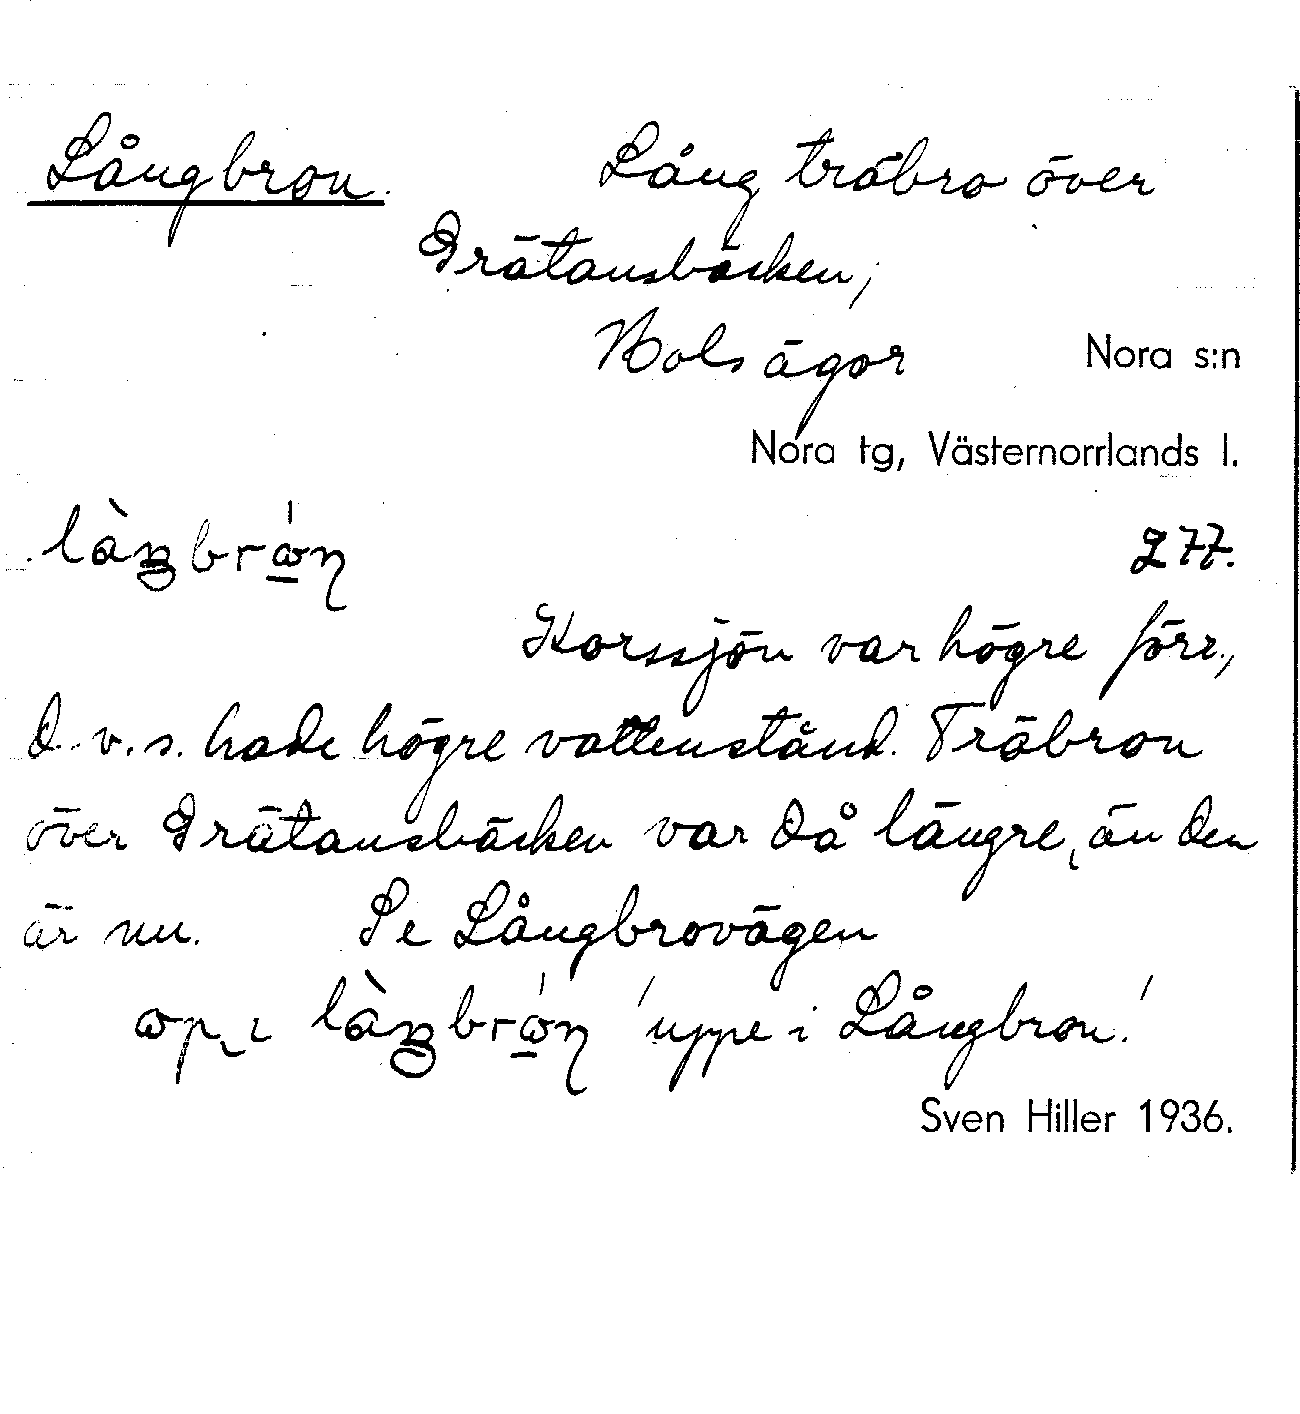 Långbron. Lång träbro över
Drätansbäcken,
Bols ägor Nora s:n
Nora tg, Västernorrlands l.
277.
Korssjön var högre förr,
d.v.s. hade högre vattenstånd. Träbron
över Drätansbäcken var då längre, än den
är nu. Se Långbrovägen
'uppe i Långbron.'
Sven Hiller 1936.